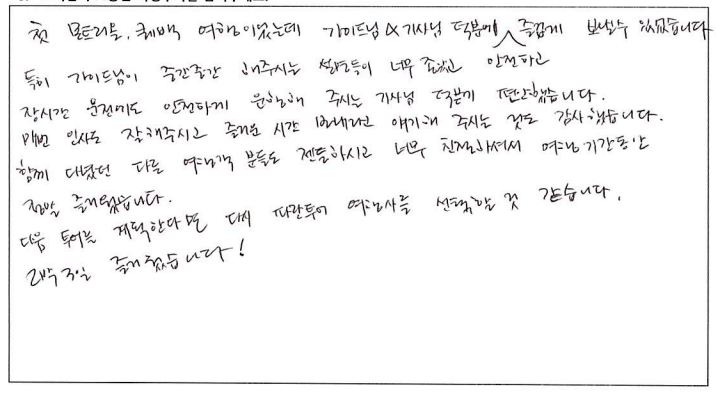 첫 몬트리올, 퀘백 여행이었는데 가이드님 & 기사님 덕분에 안전하고 즐겁게 보낼수 있었습니다
특히 가이드님이 중간중간 해주시는 설명들이 너무 좋았고
장시간 운전에도 안전하게 운행해 주시는 기사님 덕분에 편안했습니다.
매번 인사도 잘해주시고 즐거운 시간 보내라고 얘기해 주시는 것도 감사했습니다.
함께 다녔던 다른 여행객 분들도 젠틀하시고 너무 친절하셔서 여행기간동안
정말 즐거웠습니다.
다음 투어를 계획한다면 다시 파란투어 여행사를 선택할 것 같습니다.
2박 3일 즐거웠습니다!